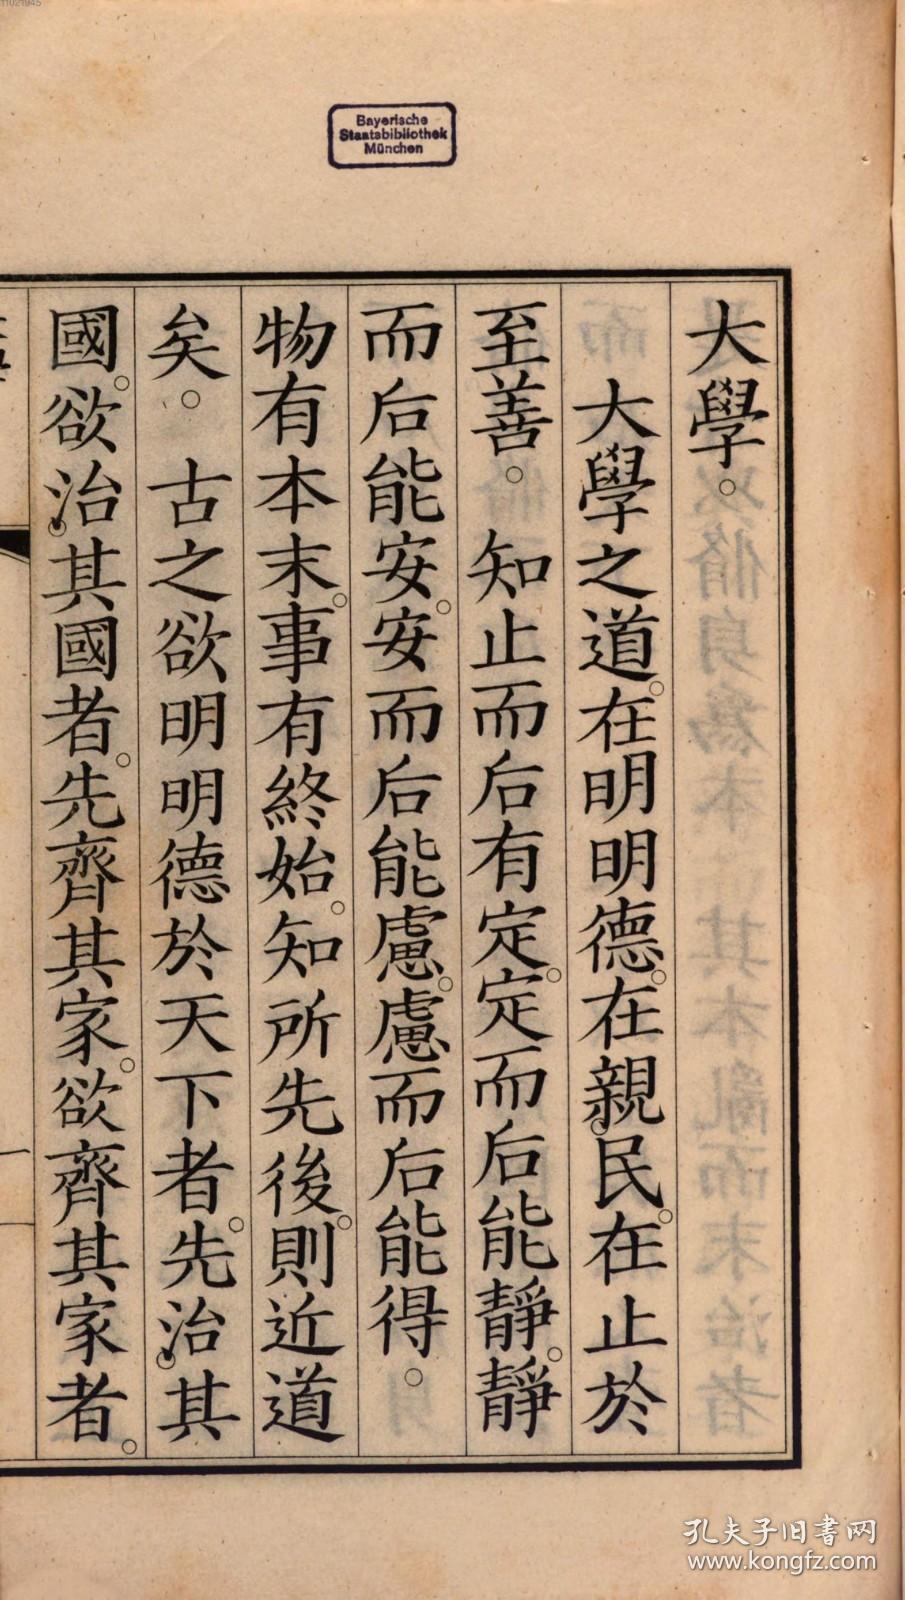 11021945
Bayerische
Staatsbibliothek
München
大學。
大學之道。在明明德。在親民。在止於
至善。 知止而后有定。定而后能靜。靜
而后能安。安而后能慮。慮而后能得。
物有本末。事有終始。知所先後。則近道
矣。 古之欲明明德於天下者。先治其
國。欲治其國者。先齊其家。欲齊其家者。
孔夫子旧书网
www.kongfz.com